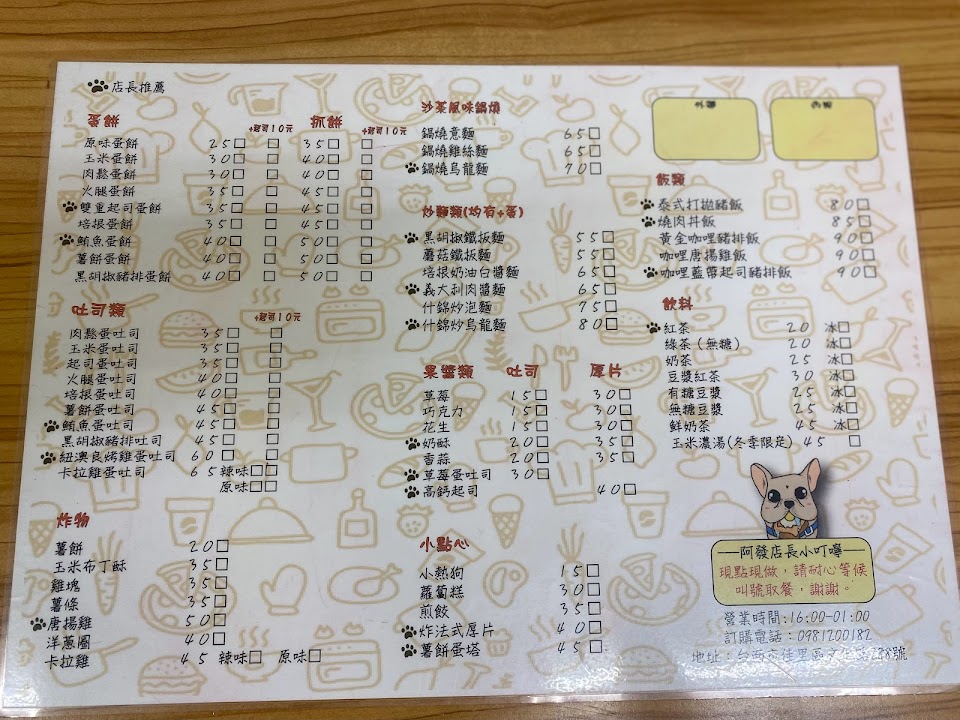 店長推薦
蛋餅 +起司10元 抓餅 +起司10元
原味蛋餅 25□ □ 35□ □
玉米蛋餅 30□ □ 40□ □
肉鬆蛋餅 30□ □ 40□ □
火腿蛋餅 35□ □ 45□ □
雙重起司蛋餅 35□ □ 45□ □
培根蛋餅 35□ □ 45□ □
鮪魚蛋餅 40□ □ 50□ □
薯餅蛋餅 40□ □ 50□ □
黑胡椒豬排蛋餅 40□ □ 50□ □
吐司類 +起司10元
肉鬆蛋吐司 35□ □
玉米蛋吐司 35□ □
起司蛋吐司 35□ □
火腿蛋吐司 40□ □
培根蛋吐司 40□ □
薯餅蛋吐司 45□ □
鮪魚蛋吐司 45□ □
黑胡椒豬排吐司 45□ □
紐澳良烤雞蛋吐司 60□ □
卡拉雞蛋吐司 65 辣味□□
原味□□
炸物
薯餅 20□
玉米布丁酥 35□
雞塊 35□
薯條 35□
唐揚雞 50□
洋蔥圈 40□
卡拉雞 45 辣味□ 原味□
沙茶風味鍋燒
鍋燒意麵 65□
鍋燒雞絲麵 65□
鍋燒烏龍麵 70□
炒麵類(均有+蛋)
黑胡椒鐵板麵 55□
蘑菇鐵板麵 55□
培根奶油白醬麵 65□
義大利肉醬麵 65□
什錦炒泡麵 75□
什錦炒烏龍麵 80□
果醬類 吐司 厚片
草莓 15□ 30□
巧克力 15□ 30□
花生 15□ 30□
奶酥 20□ 35□
香蒜 20□ 35□
草莓蛋吐司 30□
高鈣起司 40□
小點心
小熱狗 15□
蘿蔔糕 30□
煎餃 35□
炸法式厚片 40□
薯餅蛋塔 45□
外帶 內用
飯類
泰式打拋豬飯 80□
燒肉丼飯 85□
黃金咖哩豬排飯 90□
咖哩唐揚雞飯 90□
咖哩藍帶起司豬排飯 90□
飲料
紅茶 20 冰□
綠茶(無糖) 20 冰□
奶茶 25 冰□
豆漿紅茶 30 冰□
有糖豆漿 25 冰□
無糖豆漿 25 冰□
鮮奶茶 45 冰□
玉米濃湯(冬季限定) 45 □
阿發店長小叮嚀
現點現做,請耐心等候
叫號取餐,謝謝。
營業時間:16:00-01:00
訂購電話:0981200182
地址:台南市佳里區文化路288號